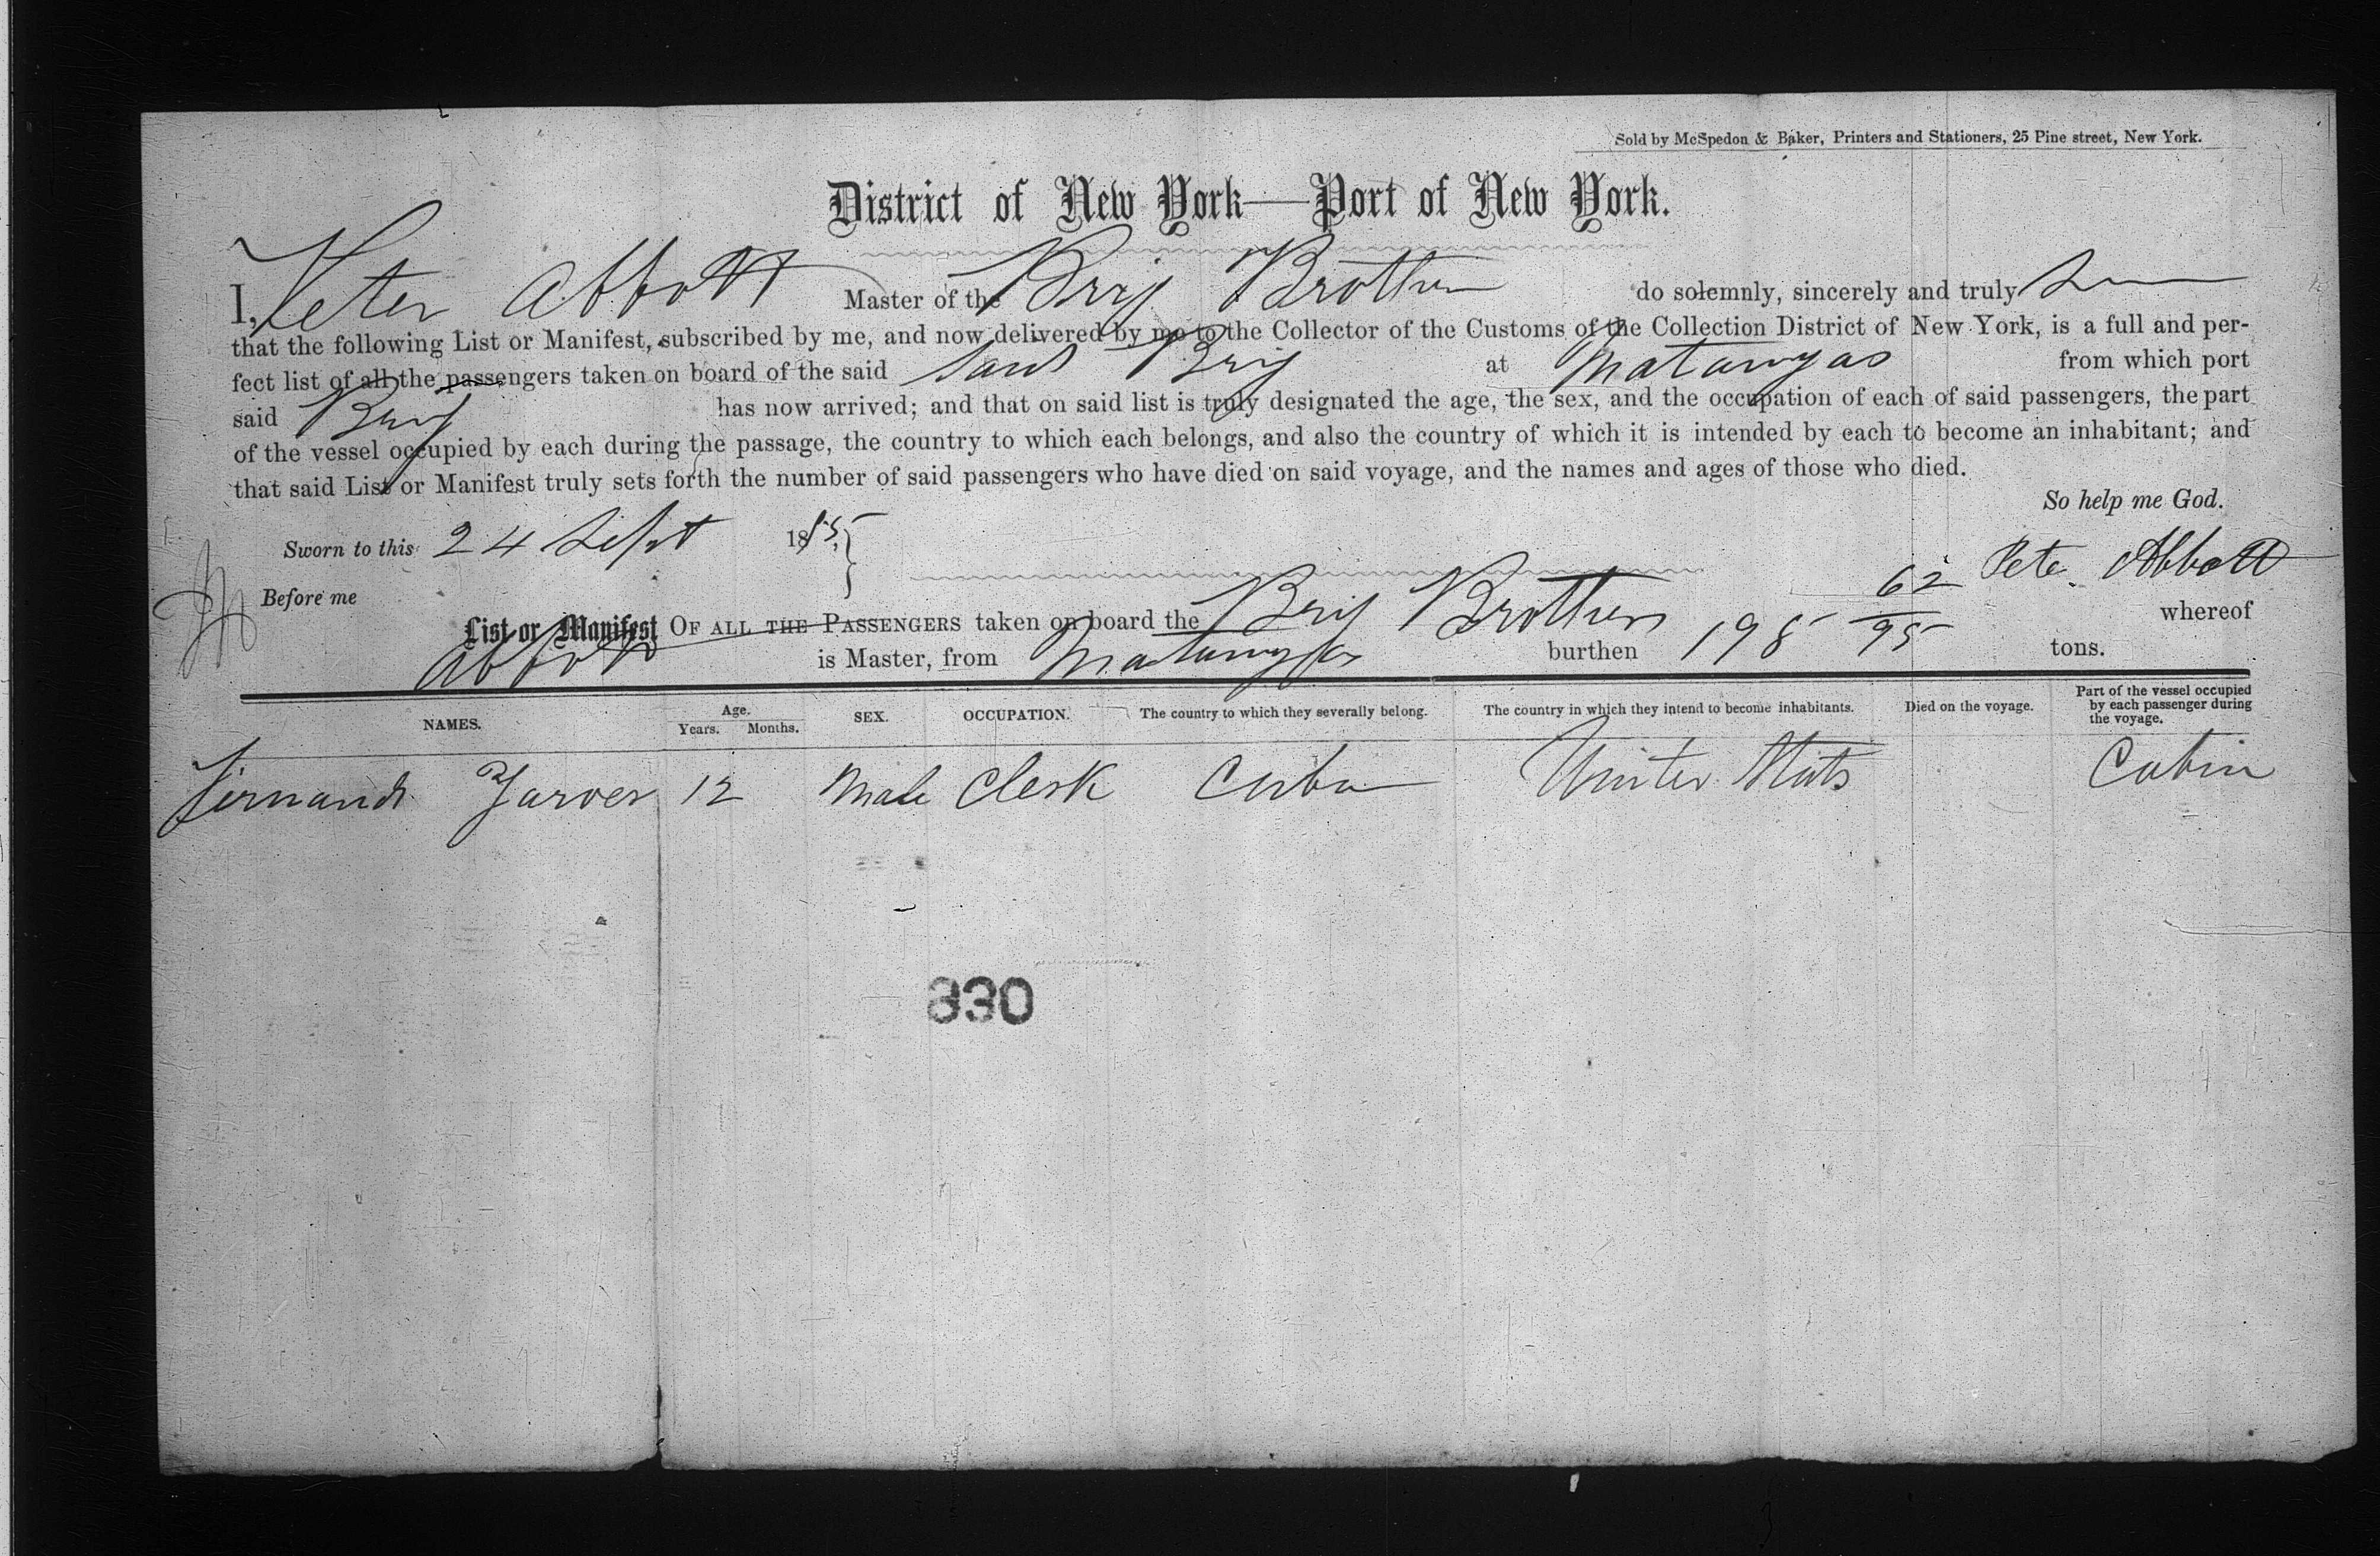 Sold by McSpedon & Baker, Printers and Stationers, 25 Pine street, New York.
District of New York—Port of New York.
I, Peter Abbott Master of the Brig Brothers do solemnly, sincerely and truly
that the following List or Manifest, subscribed by me, and now delivered by me to the Collector of the Customs of the Collection District of New York, is a full and per-
fect list of all the passengers taken on board of the said Brig at Matanzas from which port
said Brig has now arrived; and that on said list is truly designated the age, the sex, and the occupation of each of said passengers, the part
of the vessel occupied by each during the passage, the country to which each belongs, and also the country of which it is intended by each to become an inhabitant; and
that said List or Manifest truly sets forth the number of said passengers who have died on said voyage, and the names and ages of those who died.
So help me God.
Sworn to this 24 Sept 18
Before me
Peter Abbott
List or Manifest OF ALL THE PASSENGERS taken on board the Brig Brothers whereof
Abbott is Master, from Matanzas burthen 198 62/95 tons.
NAMES. Age. Years. Months. SEX. OCCUPATION. The country to which they severally belong. The country in which they intend to become inhabitants. Died on the voyage. Part of the vessel occupied by each passenger during the voyage.
12 Male Clerk Cuba United States Cabin
330